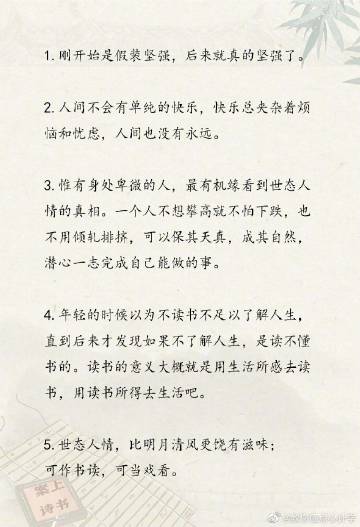 1. 刚开始是假装坚强，后来就真的坚强了。
2. 人间不会有单纯的快乐，快乐总夹杂着烦
恼和忧虑，人间也没有永远。
3. 惟有身处卑微的人，最有机缘看到世态人
情的真相。一个人不想攀高就不怕下跌，也
不用倾轧排挤，可以保其天真，成其自然，
潜心一志完成自己能做的事。
4. 年轻的时候以为不读书不足以了解人生，
直到后来才发现如果不了解人生，是读不懂
书的。读书的意义大概就是用生活所感去读
书，用读书所得去生活吧。
5. 世态人情，比明月清风更饶有滋味；
可作书读，可当戏看。
案上
诗书